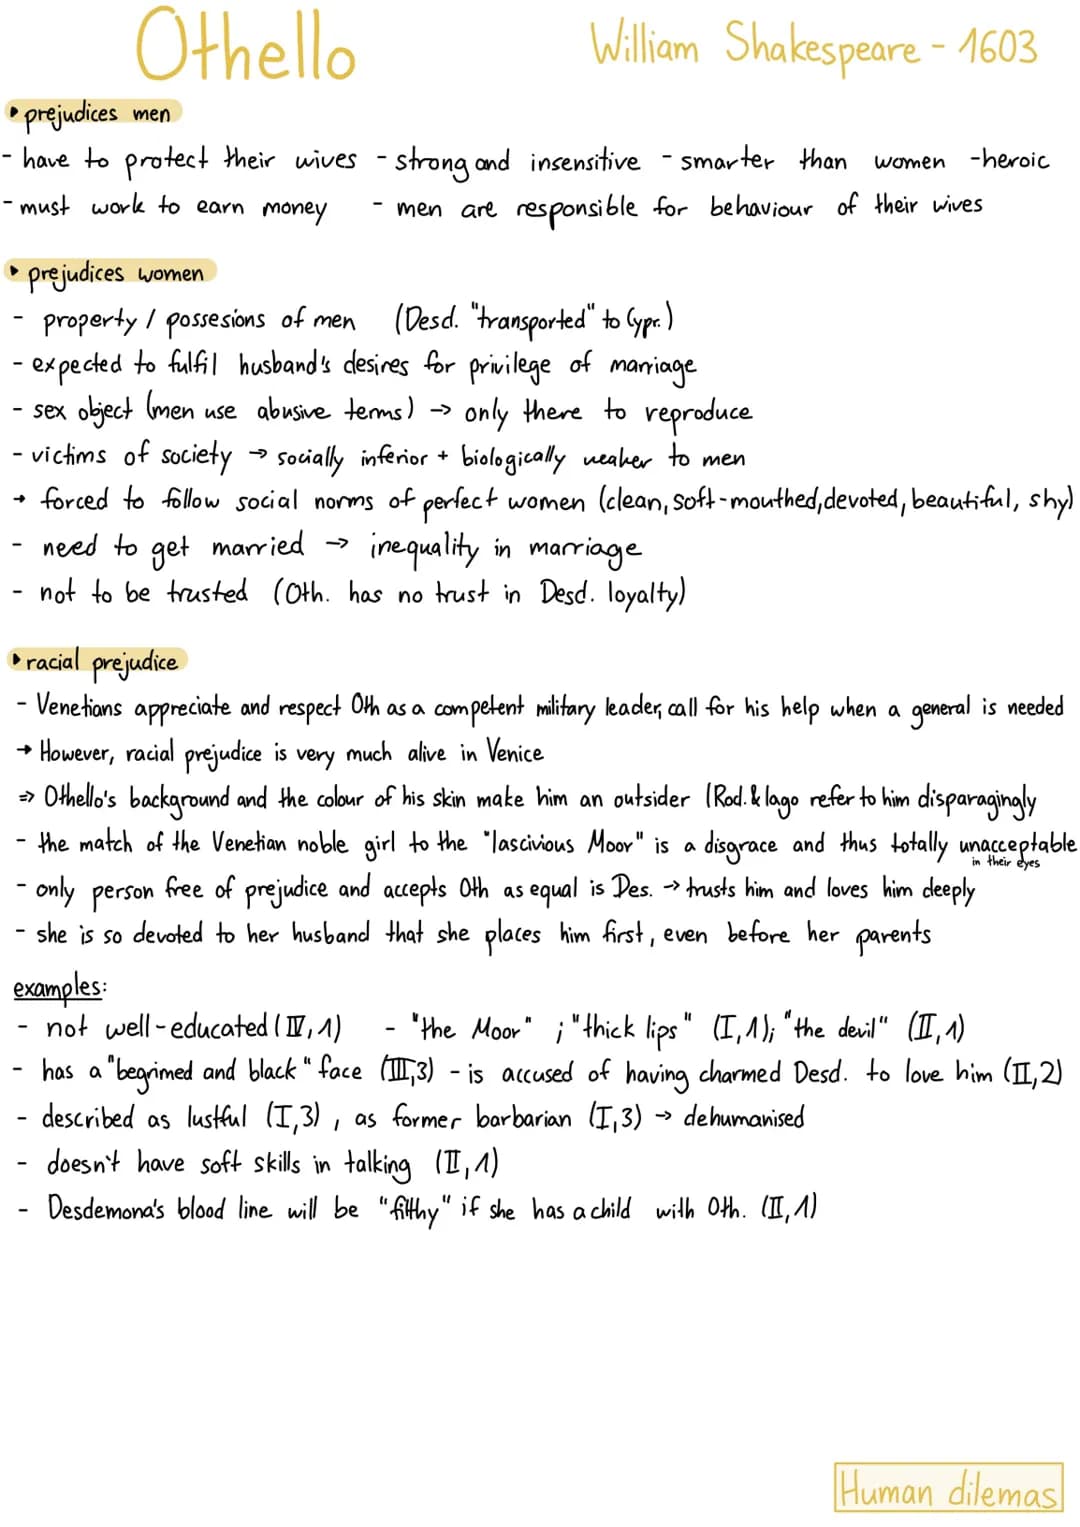 Othello William Shakespeare - 1603
▸ prejudices men
- have to protect their wives - strong and insensitive - smarter than women - heroic
- must work to earn money - men are responsible for behaviour of their wives
▸ prejudices women
- property / possesions of men (Desd. "transported" to Cypr.)
- expected to fulfil husband's desires for privilege of marriage
- sex object (men use abusive terms) → only there to reproduce
- victims of society → socially inferior + biologically weaker to men
→ forced to follow social norms of perfect women (clean, soft-mouthed, devoted, beautiful, shy)
- need to get married → inequality in marriage
- not to be trusted (Oth. has no trust in Desd. loyalty)
▸ racial prejudice
- Venetians appreciate and respect Oth as a competent military leader, call for his help when a general is needed
→ However, racial prejudice is very much alive in Venice
=> Othello's background and the colour of his skin make him an outsider (Rod. & Iago refer to him disparagingly
- the match of the Venetian noble girl to the "lascivious Moor" is a disgrace and thus totally unacceptable
in their eyes
- only person free of prejudice and accepts Oth as equal is Des. → trusts him and loves him deeply
- she is so devoted to her husband that she places him first, even before her parents
examples:
- not well-educated (IV, 1) - "the Moor" ; "thick lips" (I, 1); "the devil" (II, 1)
- has a "begrimed and black" face (III, 3) - is accused of having charmed Desd. to love him (II, 2)
- described as lustful (I, 3) , as former barbarian (I, 3) → dehumanised
- doesn't have soft skills in talking (II, 1)
- Desdemona's blood line will be "filthy" if she has a child with Oth. (II, 1)
Human dilemas